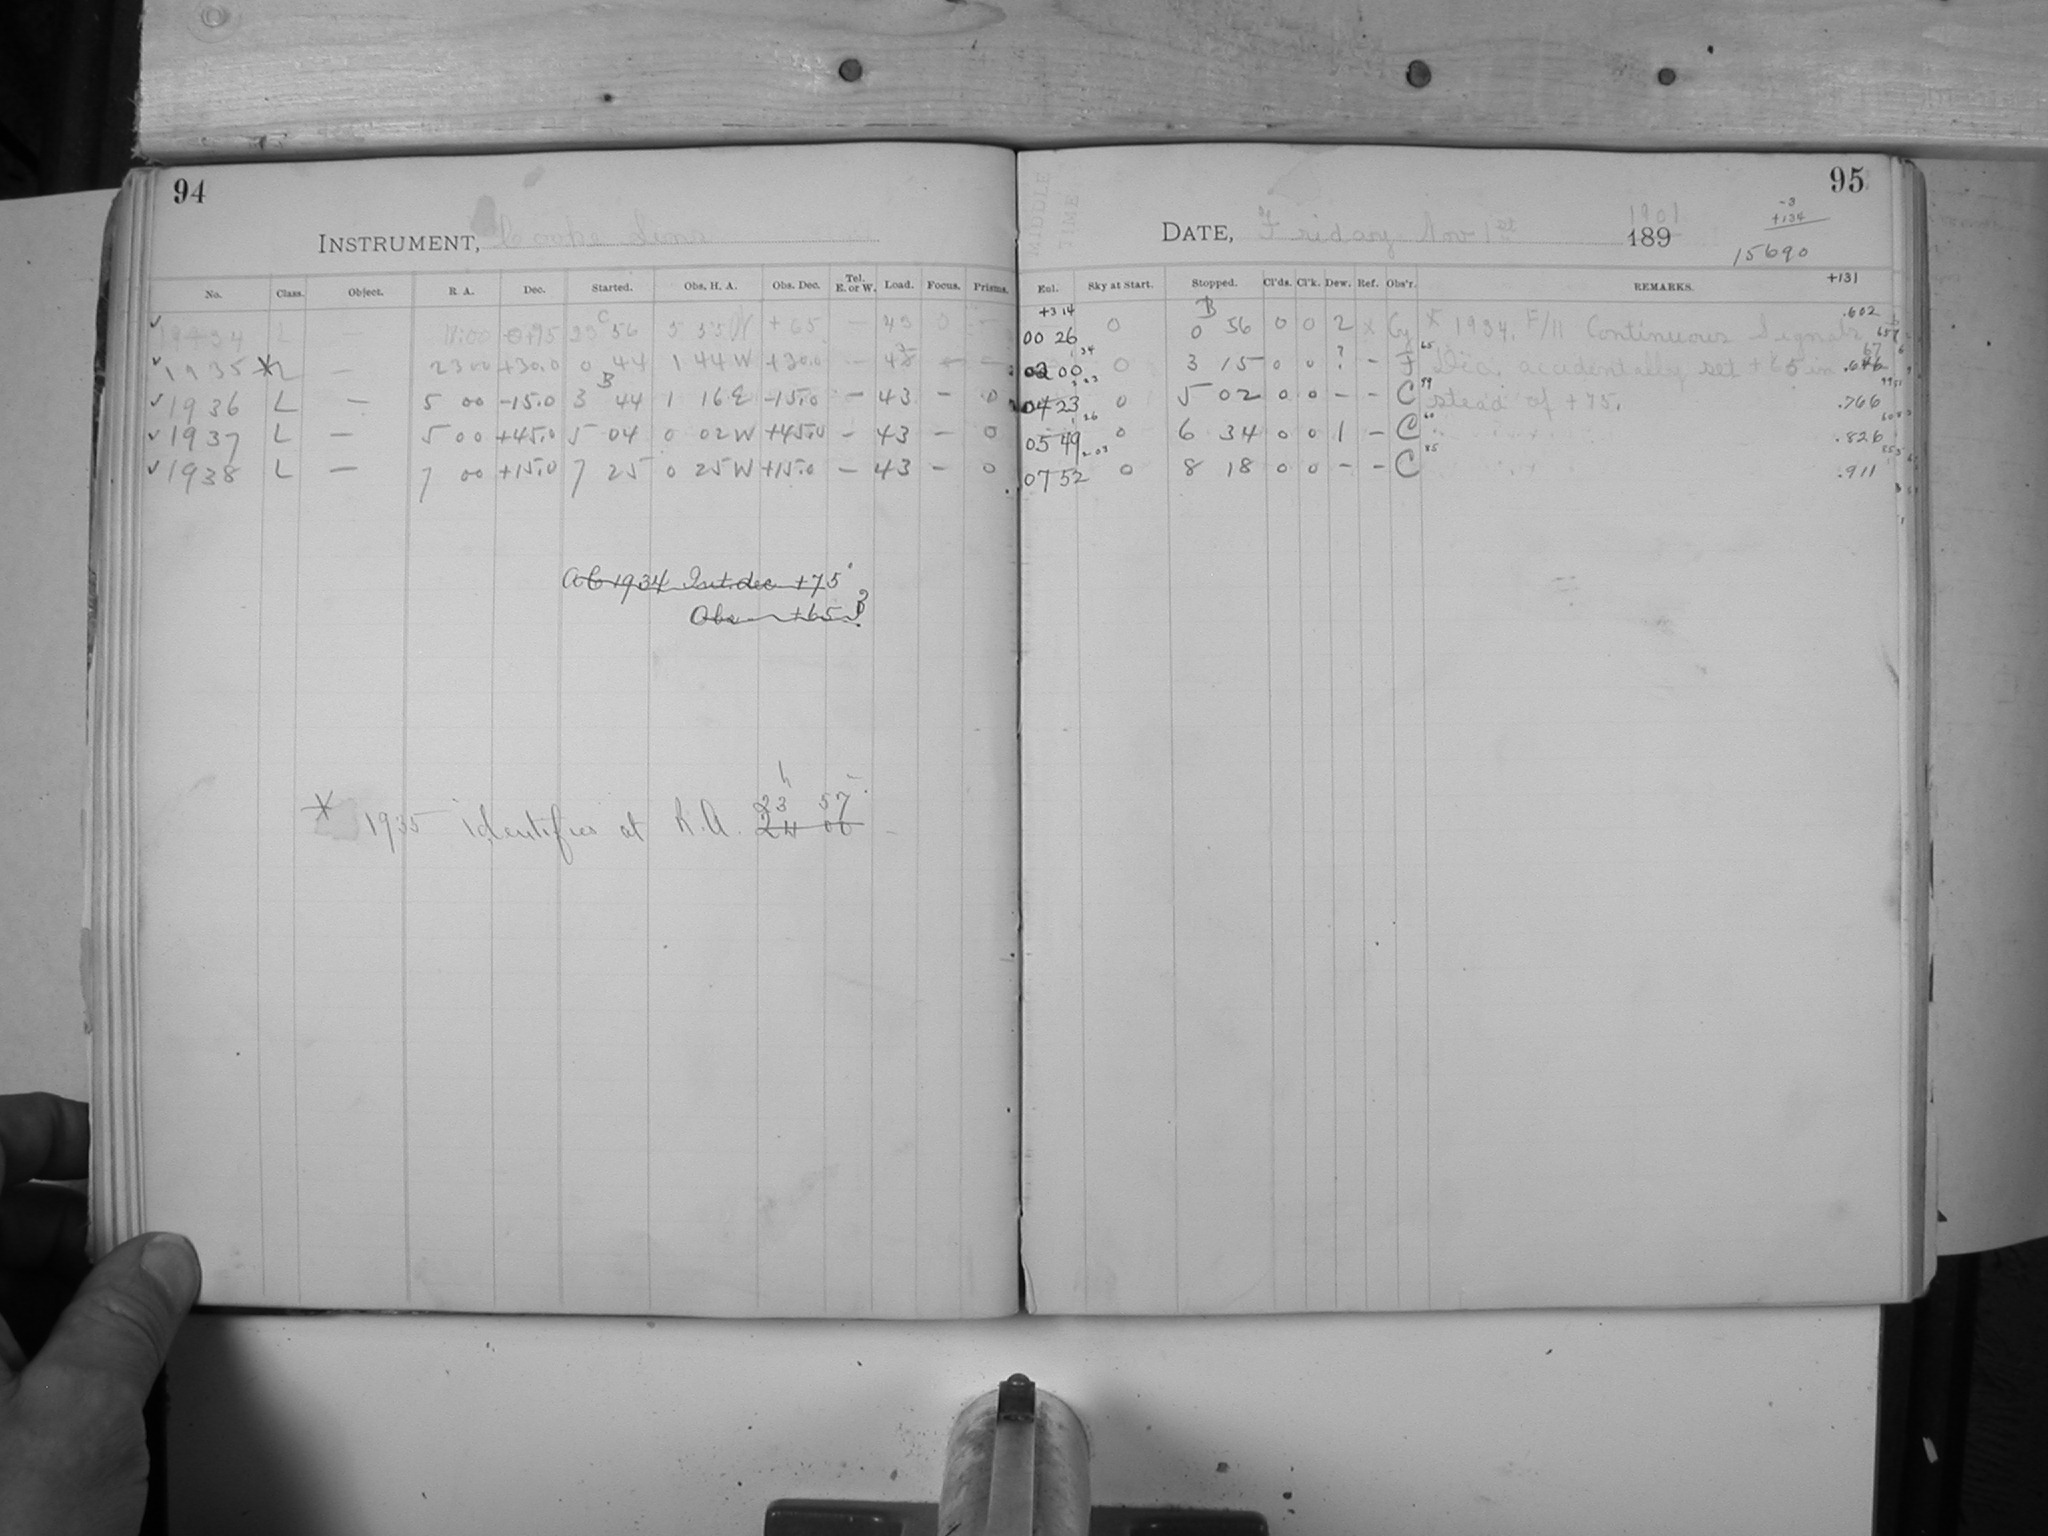 94
INSTRUMENT, Cooke Lens
No. Class. Object. R. A. Dec. Started. Obs. H. A. Obs. Dec. Tel. E. or W. Load. Focus. Prisms.
✓ 19434 L 18:00 +75 23 C 56 5 55 W +65 — 43 0 —
✓ 1935 * L — 23 00 +30.0 0 44 1 44 W +30.0 — 43 — —
✓ 1936 L — 5 00 -15.0 3 B 44 1 16 E -15.0 — 43 — 0
✓ 1937 L — 5 00 +45.0 5 04 0 02 W +45.0 — 43 — 0
✓ 1938 L — 7 00 +15.0 7 25 0 25 W +15.0 — 43 — 0
AC 1934 Int. dec +75°
Obs +65 ?
* 1935 identifies at R.A. 23 h 57
24 00
95
MIDDLE TIME
DATE, Friday Nov 1st 1901 189
-3
+134
15690
+131
Eul. Sky at Start. Stopped. Cl'ds. Cl'k. Dew. Ref. Obs'r. REMARKS.
+314
00 26 0 B 0 56 0 0 2 x Cy * 1934. F/11 Continuous Signals .602
02 00 0 3 15 0 0 ? - F Dec. accidentally set +65 in
04 23 0 5 02 0 0 - - C stead of +75. .766
05 49 0 6 34 0 0 1 - C .826
07 52 0 8 18 0 0 - - C .911